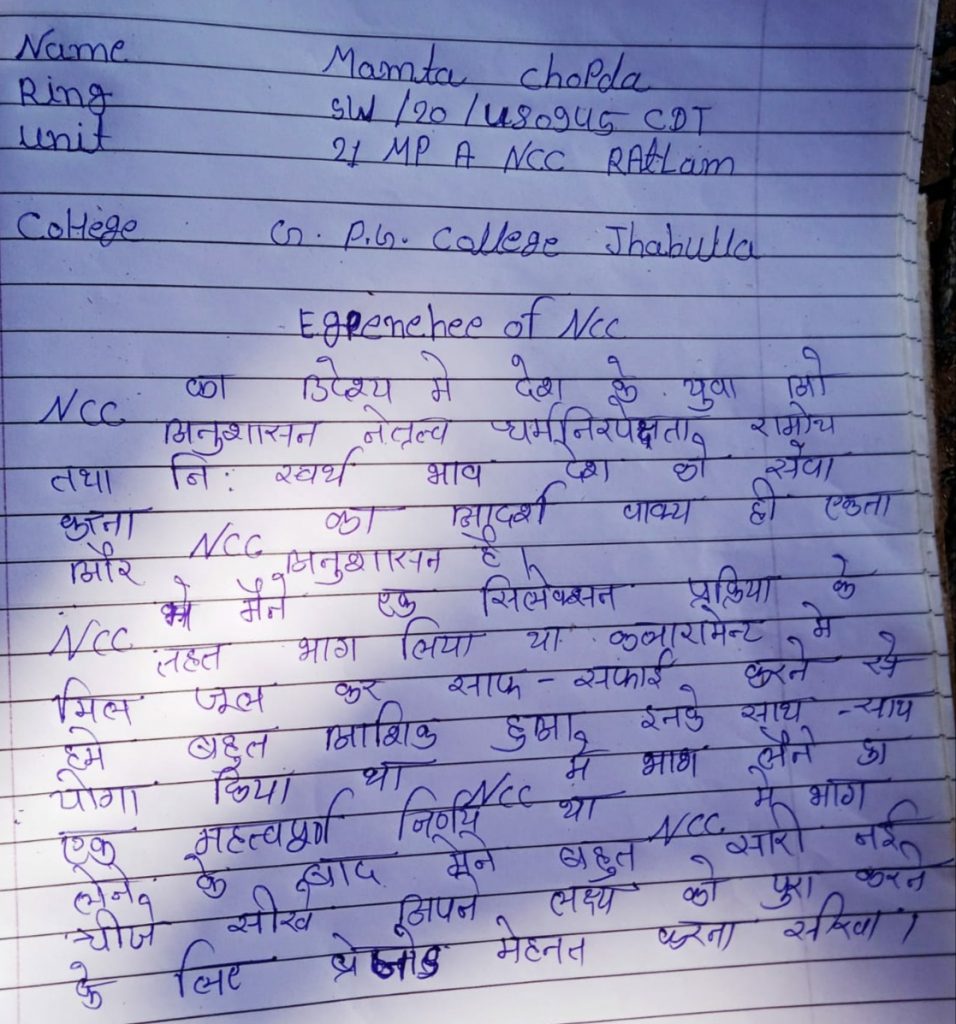 Name Mamta Chopda
Ring SW/20/480945 CDT
Unit 21 MP A NCC RAtLam
College G. P.G. College Jhabua
of NCC
NCC का उदेश्य मे देश के युवा ओ
अनुशासन नेत्रत्व धर्मनिरपेक्षता,
तथा नि: स्वर्थ भाव देश की सेवा
करना NCC का आदर्श वाक्य ही एकता
और अनुशासन है।
NCC मे मैने एक सिलेक्सन प्रक्रिया के
तहत भाग लिया था में
मिल जूल कर साफ-सफाई करने से
हमे बहुत हुआ, इनके साथ-साथ
योगा किया था NCC में भाग लेने का
एक महत्वपूर्ण निर्णय था NCC मे भाग
लेने, के बाद मैने बहुत सारी नई,
चीजे सीखे अपने लक्ष्य को पुरा करने
के लिए मेहनत करना सखिा।